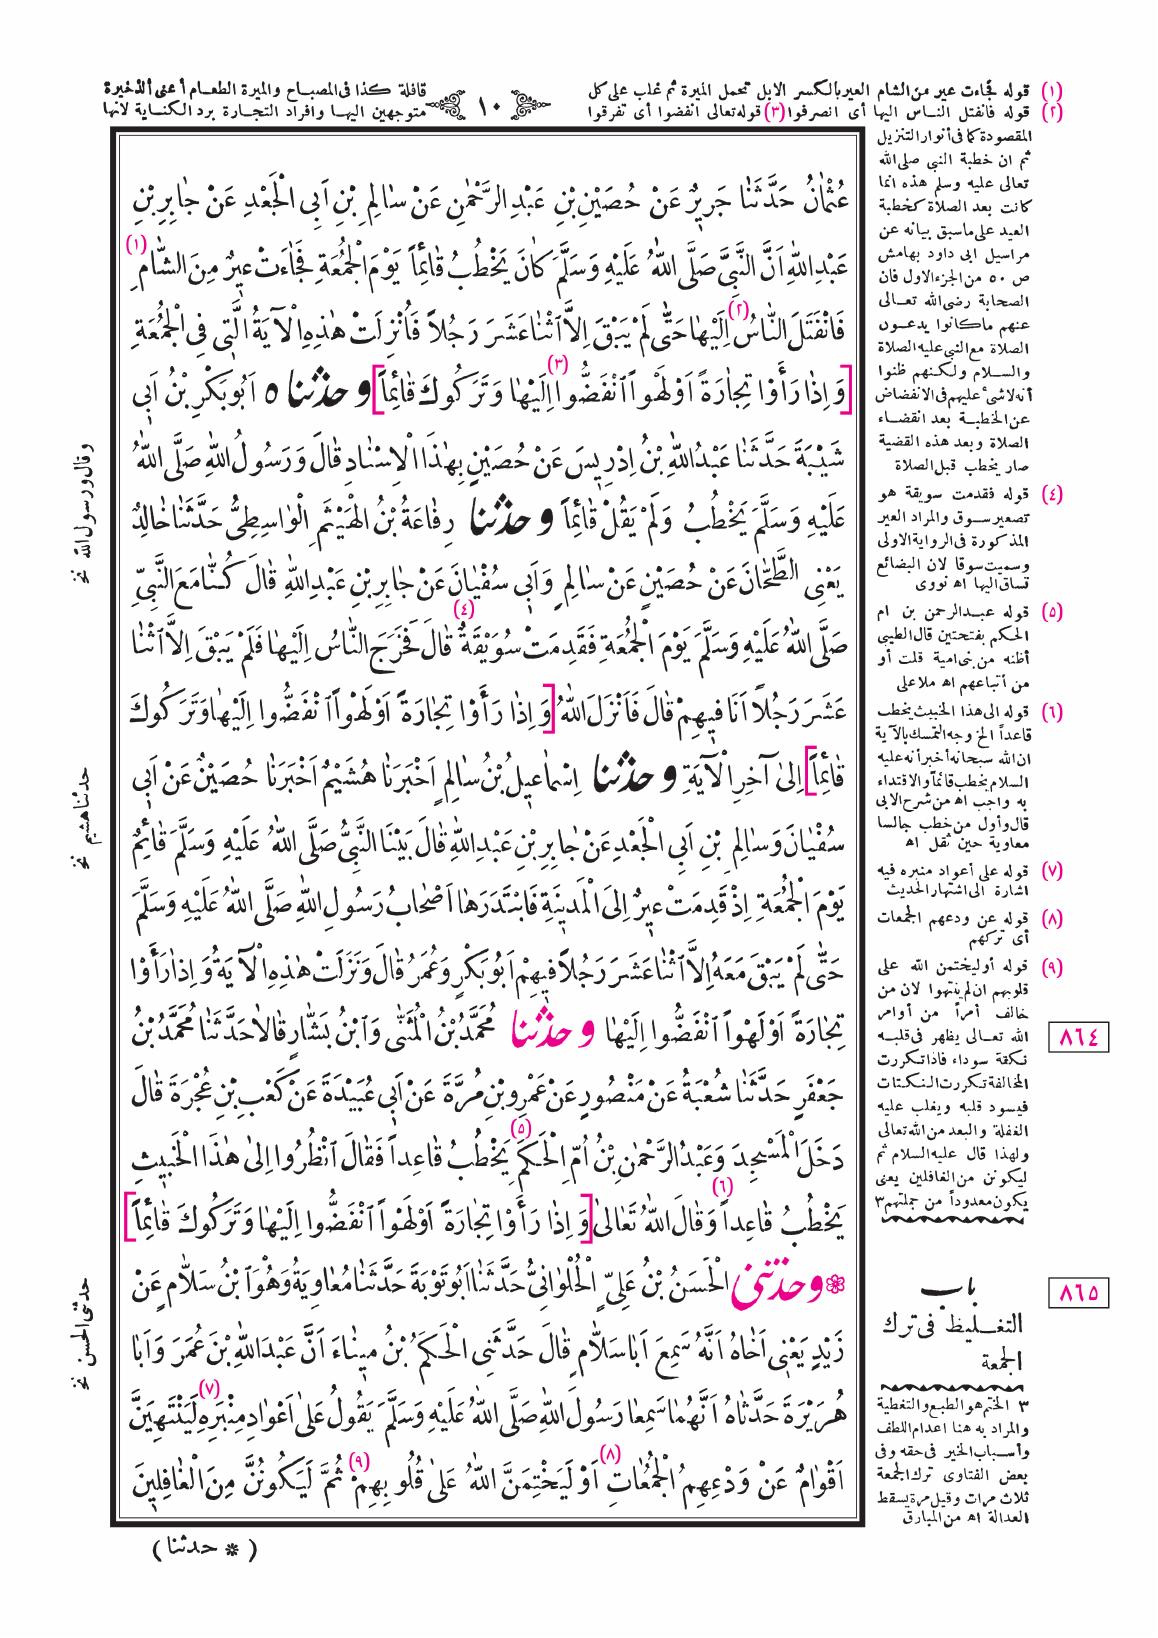 (١) قوله فجاءت عير من الشام العير بالكسر الابل تحمل الميرة ثم غلب على كل
١٠
قافلة كذا فى المصباح والميرة الطعام أعنى الذخيرة
(٢) قوله فانفتل الناس اليها أى انصرفوا (٣) قوله تعالى انفضوا أى تفرقوا
متوجهين اليها وافراد التجارة برد الكناية لانها
المقصودة كما فى أنوار التنزيل
ثم ان خطبة النبى صلى الله
تعالى عليه وسلم هذه انما
كانت بعد الصلاة كخطبة
العيد على ماسبق بيانه عن
مراسيل ابى داود بهامش
ص ٥٠ من الجزء الاول فان
الصحابة رضى الله تعالى
عنهم ماكانوا يدعون
الصلاة مع النبى عليه الصلاة
والسلام ولكنهم ظنوا
أنه لاشئ عليهم فى الانفضاض
عن الخطبة بعد انقضاء
الصلاة وبعد هذه القضية
صار يخطب قبل الصلاة
(٤) قوله فقدمت سويقة هو
تصغير سوق والمراد العير
المذكورة فى الرواية الاولى
وسميت سوقا لان البضائع
تساق اليها اه نووى
(٥) قوله عبدالرحمن بن ام
الحكم بفتحتين قال الطيبى
أظنه من بنى امية قلت أو
من أتباعهم اه ملا على
(٦) قوله الى هذا الخبيث يخطب
قاعداً الخ وجه التمسك بالآية
ان الله سبحانه أخبر أنه عليه
السلام يخطب قائماً والاقتداء
به واجب اه من شرح الابى
قال وأول من خطب جالسا
معاوية حين ثقل اه
(٧) قوله على أعواد منبره فيه
اشارة الى اشتهار الحديث
(٨) قوله عن ودعهم الجمعات
أى تركهم
(٩) قوله أو ليختمن الله على
قلوبهم ان لم ينتهوا لان من
خالف أمراً من أوامر
الله تعالى يظهر فى قلبه
نكتة سوداء فاذا تكررت
المخالفة تكررت النكتات
فيسود قلبه ويغلب عليه
الغفلة والبعد من الله تعالى
ولهذا قال عليه السلام ثم
ليكونن من الغافلين يعنى
يكون معدوداً من جملتهم ٣
٨٦٤
٨٦٥
باب
التغليظ فى ترك
الجمعة
٣ الختم هو الطبع والتغطية
والمراد به هنا اعدام اللطف
وأسباب الخير فى حقه وفى
بعض الفتاوى ترك الجمعة
ثلاث مرات وقيل مرة يسقط
العدالة اه من المبارق
عُثْمَانُ حَدَّثَنَا جَرِيرٌ عَنْ حُصَيْنِ بْنِ عَبْدِ الرَّحْمَنِ عَنْ سَالِمِ بْنِ أَبِى الْجَعْدِ عَنْ جَابِرِ بْنِ
عَبْدِ اللهِ اَنَّ النَّبِىَّ صَلَّى اللهُ عَلَيْهِ وَسَلَّمَ كَانَ يَخْطُبُ قَائِماً يَوْمَ الْجُمُعَةِ فَجَاءَتْ عِيرٌ مِنَ الشَّامِ (١)
فَانْفَتَلَ النَّاسُ (٢) اِلَيْهَا حَتَّى لَمْ يَبْقَ اِلاَّ اثْنَا عَشَرَ رَجُلاً فَأُنْزِلَتْ هٰذِهِ الْآيَةُ الَّتِى فِى الْجُمُعَةِ
[وَ اِذَا رَأَوْا تِجَارَةً اَوْ لَهْواً انْفَضُّوا (٣) اِلَيْهَا وَ تَرَكُوكَ قَائِماً] و حدثنا ٥ اَبُوبَكْرِ بْنُ اَبِى
شَيْبَةَ حَدَّثَنَا عَبْدُ اللهِ بْنُ اِدْرِيسَ عَنْ حُصَيْنٍ بِهٰذَا الْاِسْنَادِ قَالَ وَ رَسُولُ اللهِ صَلَّى اللهُ
عَلَيْهِ وَسَلَّمَ يَخْطُبُ وَلَمْ يَقُلْ قَائِماً و حدثنا رِفَاعَةُ بْنُ الْهَيْثَمِ الْوَاسِطِىُّ حَدَّثَنَا خَالِدٌ
يَعْنِى الطَّحَّانَ عَنْ حُصَيْنٍ عَنْ سَالِمٍ وَ اَبِى سُفْيَانَ عَنْ جَابِرِ بْنِ عَبْدِ اللهِ قَالَ كُنَّا مَعَ النَّبِىِّ
صَلَّى اللهُ عَلَيْهِ وَسَلَّمَ يَوْمَ الْجُمُعَةِ فَقَدِمَتْ سُوَيْقَةٌ (٤) قَالَ فَخَرَجَ النَّاسُ اِلَيْهَا فَلَمْ يَبْقَ اِلاَّ اثْنَا
عَشَرَ رَجُلاً اَنَا فِيهِمْ قَالَ فَاَنْزَلَ اللهُ [وَ اِذَا رَأَوْا تِجَارَةً اَوْ لَهْواً انْفَضُّوا اِلَيْهَا وَتَرَكُوكَ
قَائِماً] اِلَى آخِرِ الْآيَةِ و حدثنا اِسْمَاعِيلُ بْنُ سَالِمٍ اَخْبَرَنَا هُشَيْمٌ اَخْبَرَنَا حُصَيْنٌ عَنْ اَبِى
سُفْيَانَ وَسَالِمِ بْنِ اَبِى الْجَعْدِ عَنْ جَابِرِ بْنِ عَبْدِ اللهِ قَالَ بَيْنَا النَّبِىُّ صَلَّى اللهُ عَلَيْهِ وَسَلَّمَ قَائِمٌ
يَوْمَ الْجُمُعَةِ اِذْ قَدِمَتْ عِيرٌ اِلَى الْمَدِينَةِ فَابْتَدَرَهَا اَصْحَابُ رَسُولِ اللهِ صَلَّى اللهُ عَلَيْهِ وَسَلَّمَ
حَتَّى لَمْ يَبْقَ مَعَهُ اِلاَّ اثْنَا عَشَرَ رَجُلاً فِيهِمْ اَبُوبَكْرٍ وَعُمَرُ قَالَ وَنَزَلَتْ هٰذِهِ الْآيَةُ وَ اِذَا رَأَوْا
تِجَارَةً اَوْ لَهْواً انْفَضُّوا اِلَيْهَا و حدثنا مُحَمَّدُ بْنُ الْمُثَنَّى وَابْنُ بَشَّارٍ قَالاَ حَدَّثَنَا مُحَمَّدُ بْنُ
جَعْفَرٍ حَدَّثَنَا شُعْبَةُ عَنْ مَنْصُورٍ عَنْ عَمْرِو بْنِ مُرَّةَ عَنْ اَبِى عُبَيْدَةَ عَنْ كَعْبِ بْنِ عُجْرَةَ قَالَ
دَخَلَ الْمَسْجِدَ وَعَبْدُ الرَّحْمٰنِ بْنُ اُمِّ الْحَكَمِ (٥) يَخْطُبُ قَاعِداً فَقَالَ انْظُرُوا اِلَى هٰذَا الْخَبِيثِ
يَخْطُبُ قَاعِداً (٦) وَقَالَ اللهُ تَعَالَى [وَ اِذَا رَأَوْا تِجَارَةً اَوْ لَهْواً انْفَضُّوا اِلَيْهَا وَتَرَكُوكَ قَائِماً]
❁ وحدثنى الْحَسَنُ بْنُ عَلِىٍّ الْحُلْوَانِىُّ حَدَّثَنَا اَبُو تَوْبَةَ حَدَّثَنَا مُعَاوِيَةُ وَهُوَ ابْنُ سَلاَّمٍ عَنْ
زَيْدٍ يَعْنِى اَخَاهُ اَنَّهُ سَمِعَ اَبَا سَلاَّمٍ قَالَ حَدَّثَنِى الْحَكَمُ بْنُ مِينَاءَ اَنَّ عَبْدَ اللهِ بْنَ عُمَرَ وَ اَبَا
هُرَيْرَةَ حَدَّثَاهُ اَنَّهُمَا سَمِعَا رَسُولَ اللهِ صَلَّى اللهُ عَلَيْهِ وَسَلَّمَ يَقُولُ عَلَى اَعْوَادِ مِنْبَرِهِ (٧) لَيَنْتَهِيَنَّ
اَقْوَامٌ عَنْ وَدْعِهِمُ الْجُمُعَاتِ (٨) اَوْ لَيَخْتِمَنَّ اللهُ عَلَى قُلُوبِهِمْ (٩) ثُمَّ لَيَكُونُنَّ مِنَ الْغَافِلِينَ
وقال ورسول الله نخ
حدثنا هشيم نخ
حدثنى الحسن نخ
( * حدثنا )